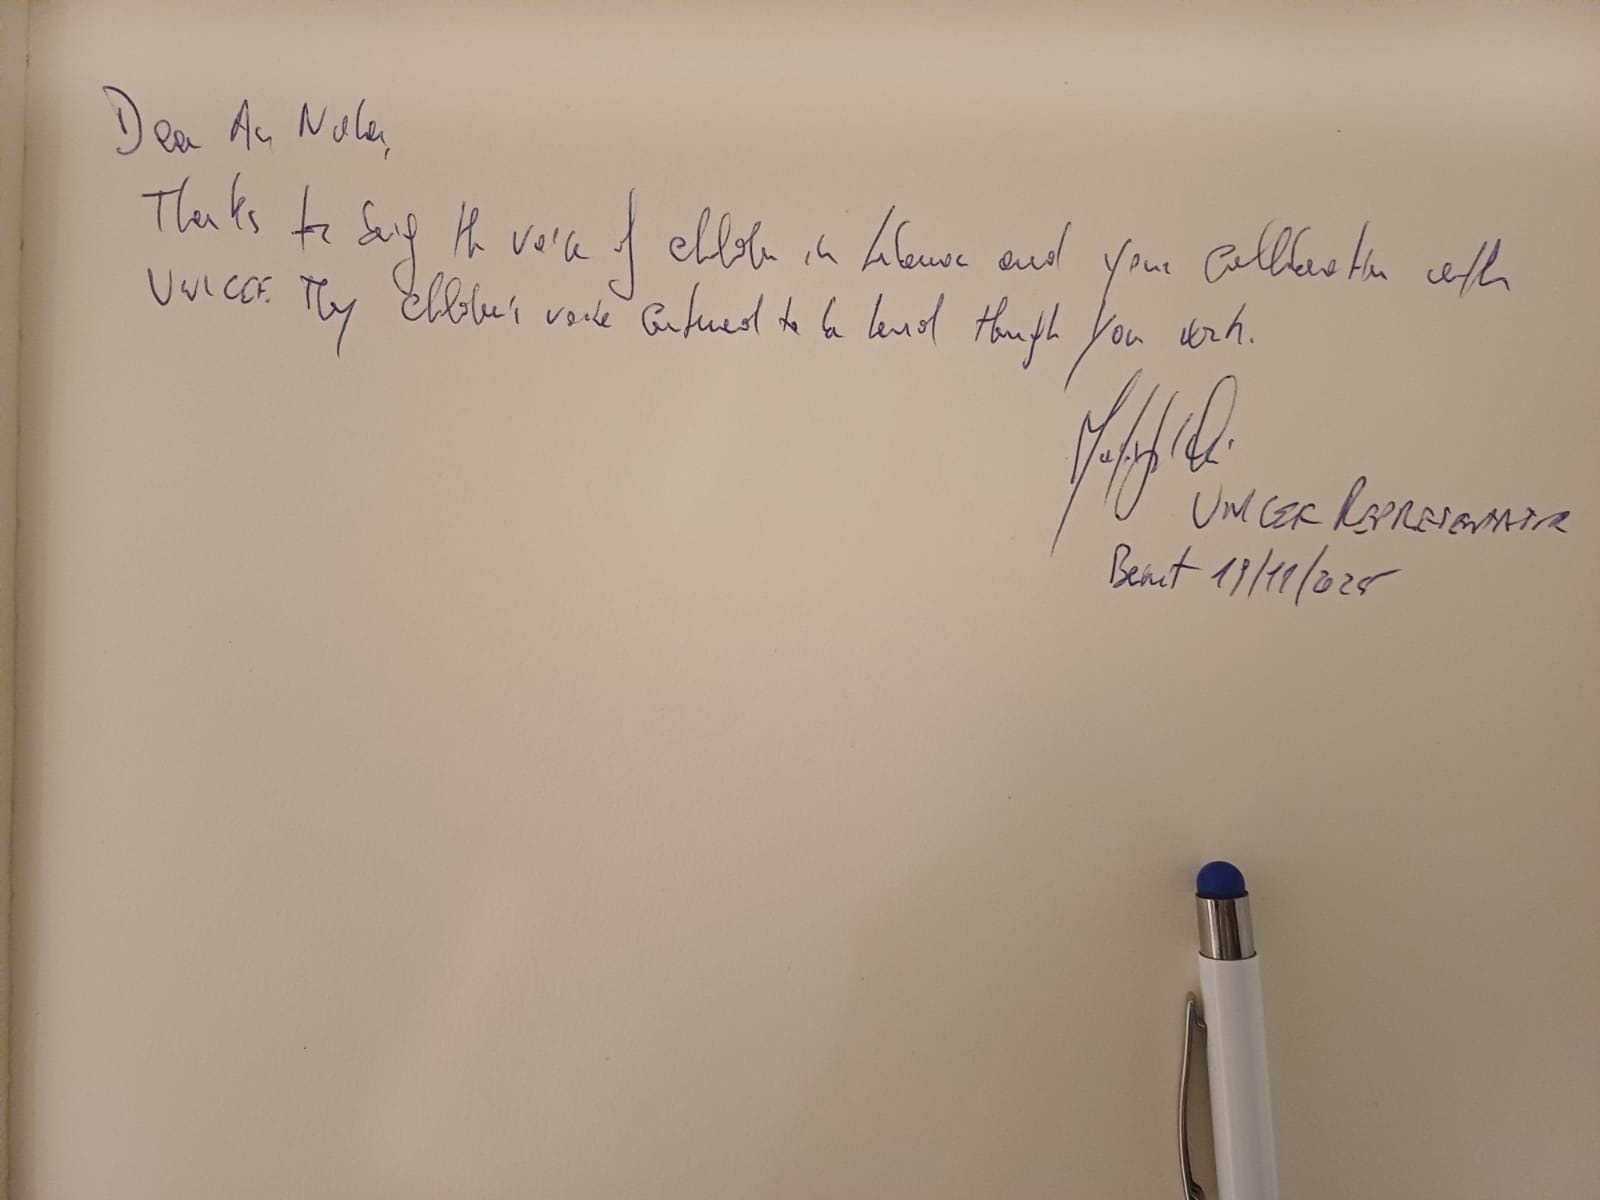 Dear An Nahar,
Thanks for being the voice of children in Lebanon and your collaboration with
UNICEF. May children's voice continued to be heard though your work.
UNICEF REPRESENTATIVE
Beirut 19/11/2025